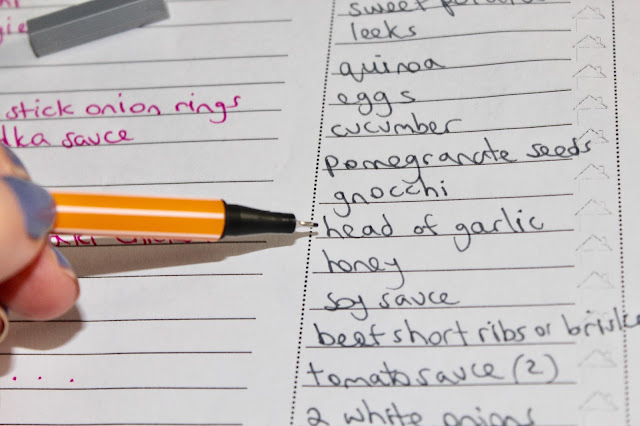 stick onion rings
dka sauce
sweet
leeks
quinoa
eggs
cucumber
pomegranate seeds
gnocchi
head of garlic
honey
soy sauce
beef short ribs or briske
tomato sauce (2)
2 white onions